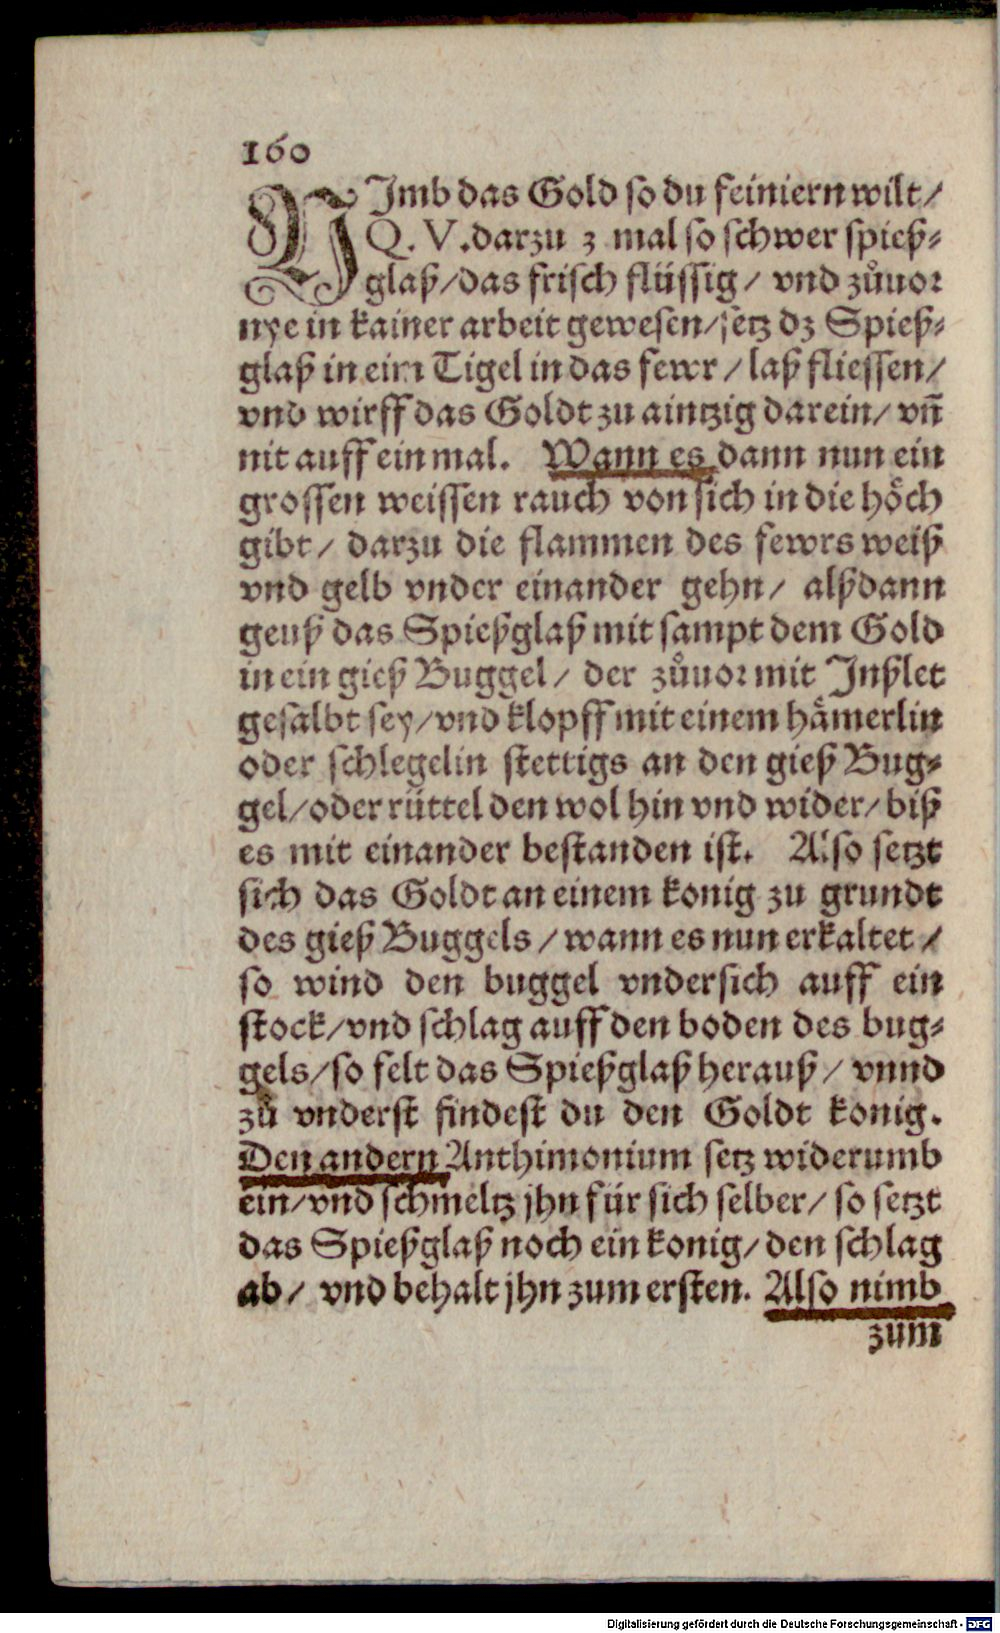 160
NJmb das Gold so du feiniern wilt/
Q. V. darzu 3 mal so schwer spieß⸗
glaß/das frisch flüssig/ vnd zůuor
nye in kainer arbeit gewesen/setz dz Spieß⸗
glaß in eim Tigel in das fewr/laß fliessen/
vnd wirff das Goldt zu aintzig darein/ vñ
nit auff ein mal. Wann es dann nun ein
grossen weissen rauch von sich in die höch
gibt/ darzu die flammen des fewrs weiß
vnd gelb vnder einander gehn/ alßdann
geuß das Spießglaß mit sampt dem Gold
in ein gieß Buggel/ der zůuor mit Jnßlet
gesalbt sey/vnd klopff mit einem hämerlin
oder schlegelin stettigs an den gieß Bug⸗
gel/oder rüttel den wol hin vnd wider/biß
es mit einander bestanden ist. Also setzt
sich das Goldt an einem konig zu grundt
des gieß Buggels/wann es nun erkaltet/
so wind den buggel vndersich auff ein
stock/vnd schlag auff den boden des bug⸗
gels/so felt das Spießglaß herauß/ vnnd
zů vnderst findest du den Goldt konig.
Den andern Anthimonium setz widerumb
ein/vnd schmeltz jhn für sich selber/ so setzt
das Spießglaß noch ein konig/den schlag
ab/ vnd behalt jhn zum ersten. Also nimb
zum
Digitalisierung gefördert durch die Deutsche Forschungsgemeinschaft - DFG